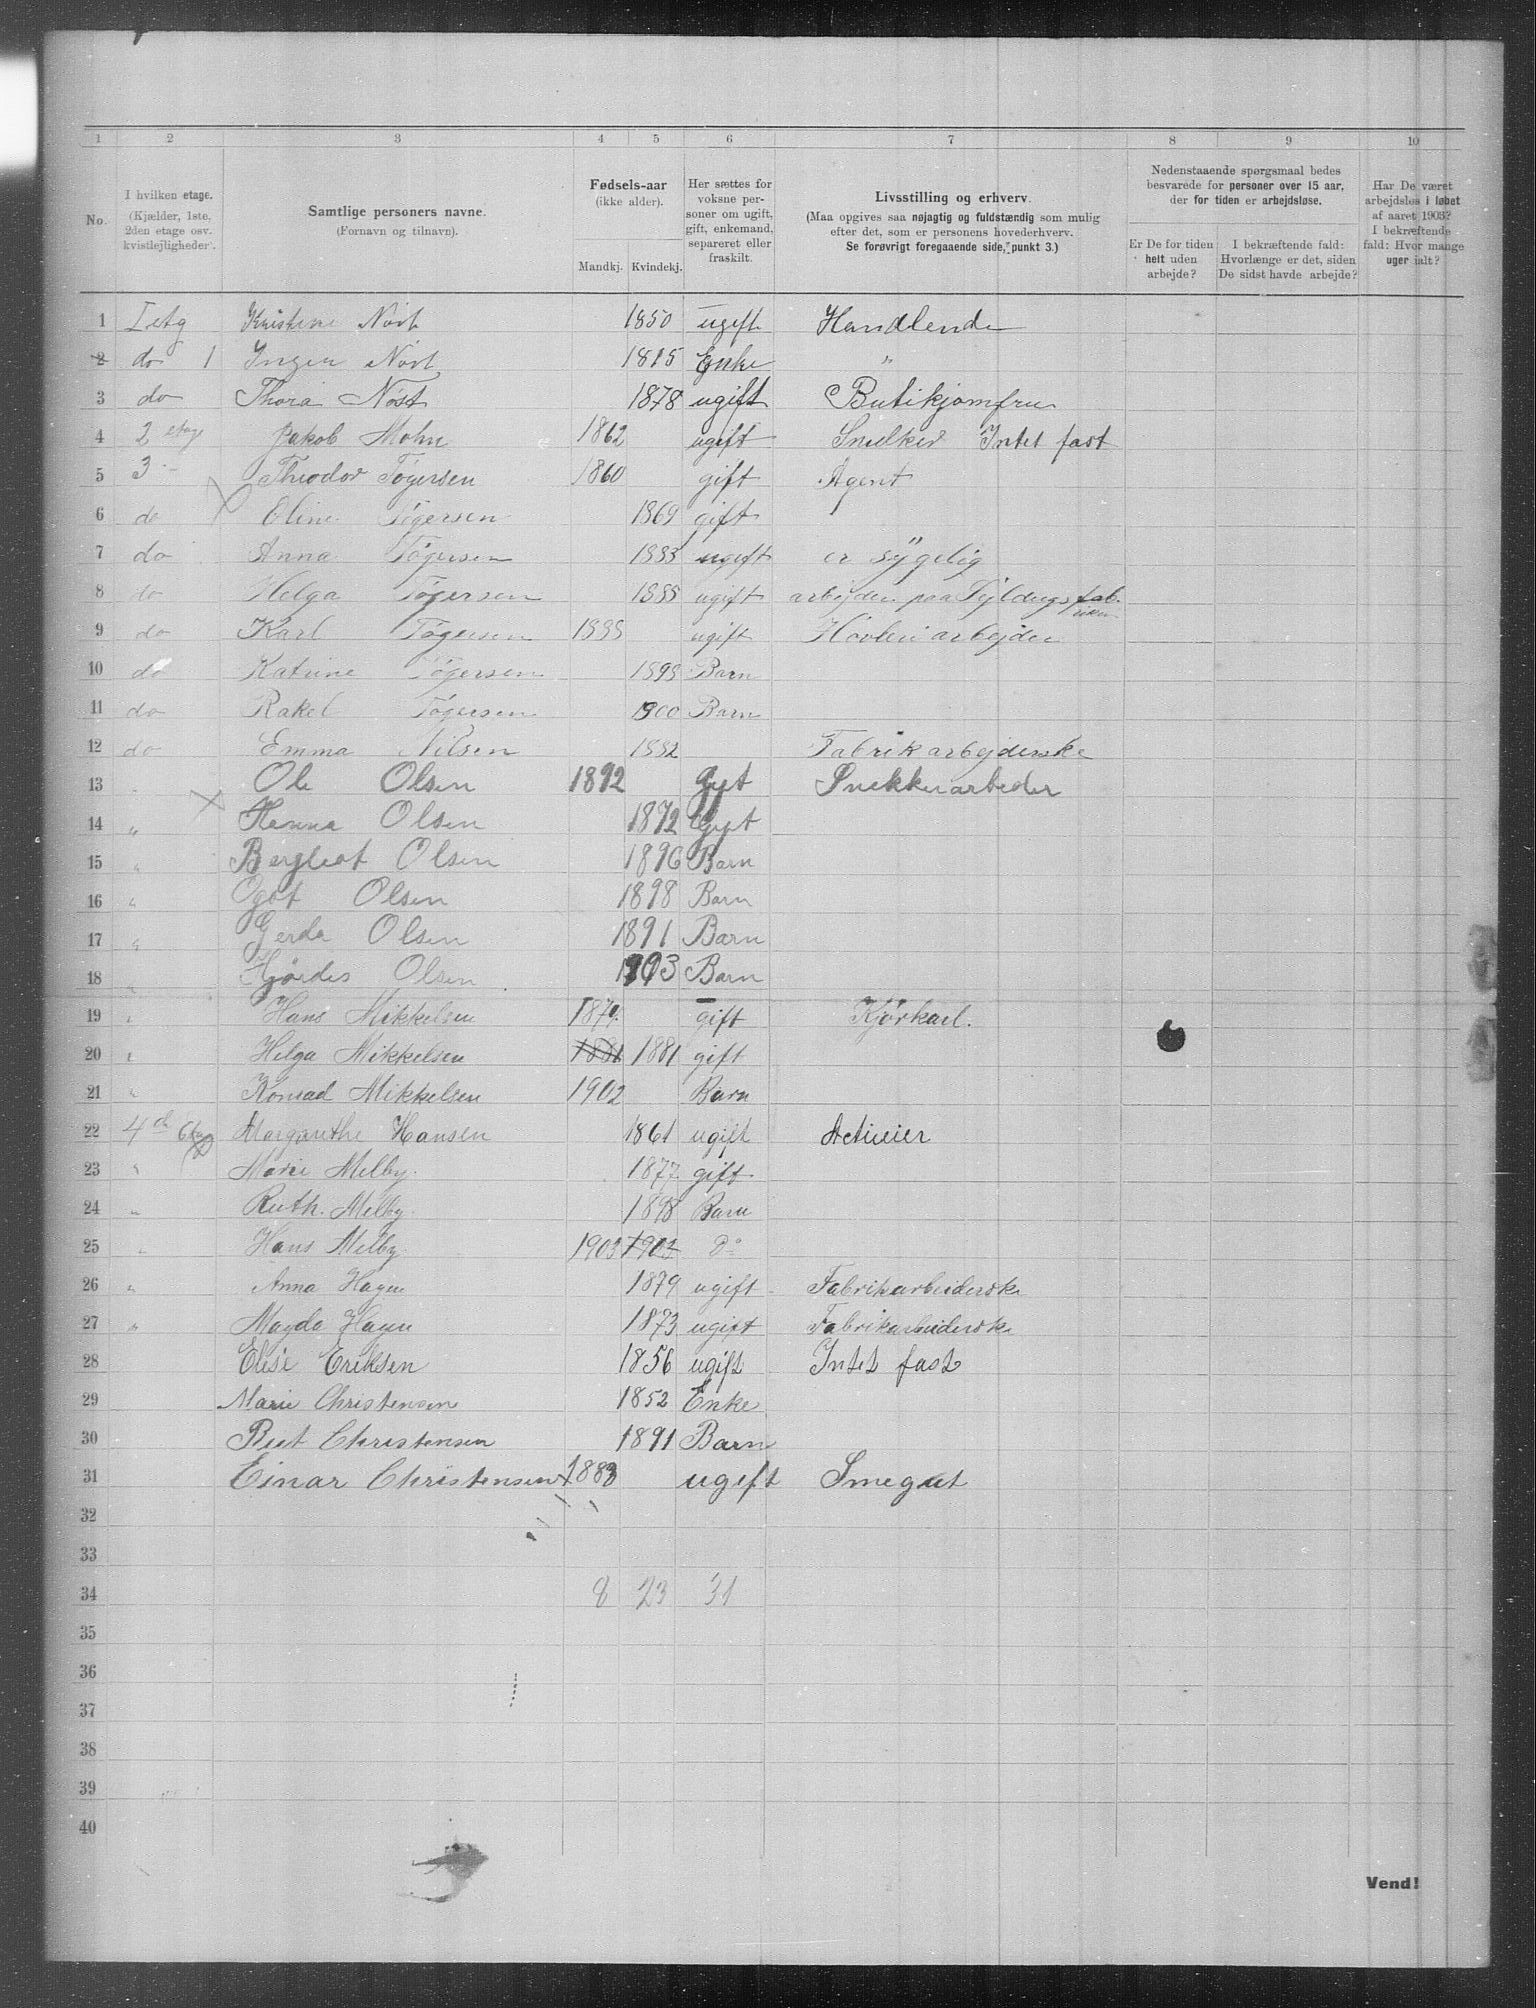 1 2 3 4 5 6 7 8 9 10
No.
I hvilken etage.
(Kjælder, 1ste,
2den etage osv.
kvistlejligheder).
Samtlige personers navne.
(Fornavn og tilnavn).
Fødsels-aar
(ikke alder).
Mandkj. Kvindekj.
Her sættes for
voksne per-
soner om ugift,
gift, enkemand,
separeret eller
fraskilt.
Livsstilling og erhverv.
(Maa opgives saa nøjagtig og fuldstændig som mulig
efter det, som er personens hovederhverv.
Se forøvrigt foregaaende side, punkt 3.)
Nedenstaaende spørgsmaal bedes
besvarede for personer over 15 aar,
der for tiden er arbejdsløse.
Er De for tiden
helt uden
arbejde?
I bekræftende fald:
Hvorlænge er det, siden
De sidst havde arbejde?
Har De været
arbejdsløs i løbet
af aaret 1903?
I bekræftende
fald: Hvor mange
uger ialt?
1 I etg Kristine Nöst 1850 ugift Handlende
2 do 1 Inger Nöst 1815 Enke "
3 do Thora Nöst 1878 ugift Butikjomfru
4 2 etag Jakob Mohn 1862 ugift Snelker Intet fast
5 3 - Theodor Tögersen 1860 gift Agent
6 do Oline Tögersen 1869 gift
7 do Anna Tögersen 1883 ugift er sygelig
8 do Helga Tögersen 1885 ugift arbejder paa Sejldugsfab.
riken
9 do Karl Tögersen 1888 ugift Hövleriarbejder
10 do Katrine Tögersen 1898 Barn
11 do Rakel Tögersen 1900 Barn
12 do Emma Nilsen 1882 Fabrikarbejderske
13 Ole Olsen 1892 Gift Snekkerarbeder
14 " Hanna Olsen 1872 Gift
15 " Bergliot Olsen 1896 Barn
16 " Ogot Olsen 1898 Barn
17 " Gerda Olsen 1891 Barn
18 " Hjördes Olsen 1903 Barn
19 " Hans Mikkelsen 1879 gift Kjörkarl.
20 " Helga Mikkelsen 1881 1881 gift
21 " Konrad Mikkelsen 1902 Barn
22 4de Etg Margarethe Hansen 1861 ugift
23 " Marie Melby. 1877 gift
24 " Ruth. Melby. 1898 Barn
25 " Hans Melby. 1903 1903 Do
26 " Anna Hagen 1879 ugift Fabrikarbeiderske
27 " Magda Hagen 1873 ugift Fabrikarbeiderske
28 Elise Eriksen 1856 ugift Intet fast
29 Marie Christensen 1852 Enke
30 Rut Christensen 1891 Barn
31 Einar Christensen 1888 ugift Smegut
32
33
34 8 23 31
35
36
37
38
39
40
Vend!